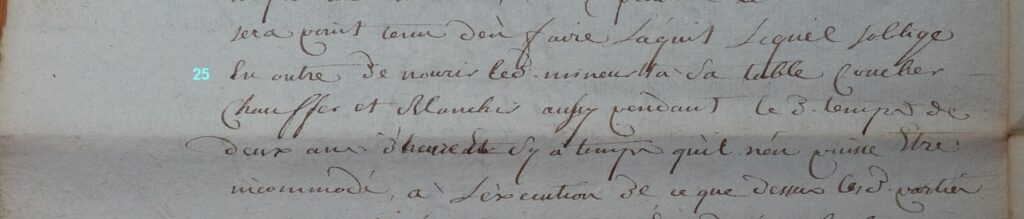 sera point tenu d'en faire l'aquit Lequel soblige
25 En outre de nourir led. mineur à Sa table Coucher
Chauffer et Blanchir aussy pendant le d. temps de
deux ans d'heure Et Sy a temps qu'il n'en puisse Etre
incommodé, a L'execution de ce que dessus lesd. parties